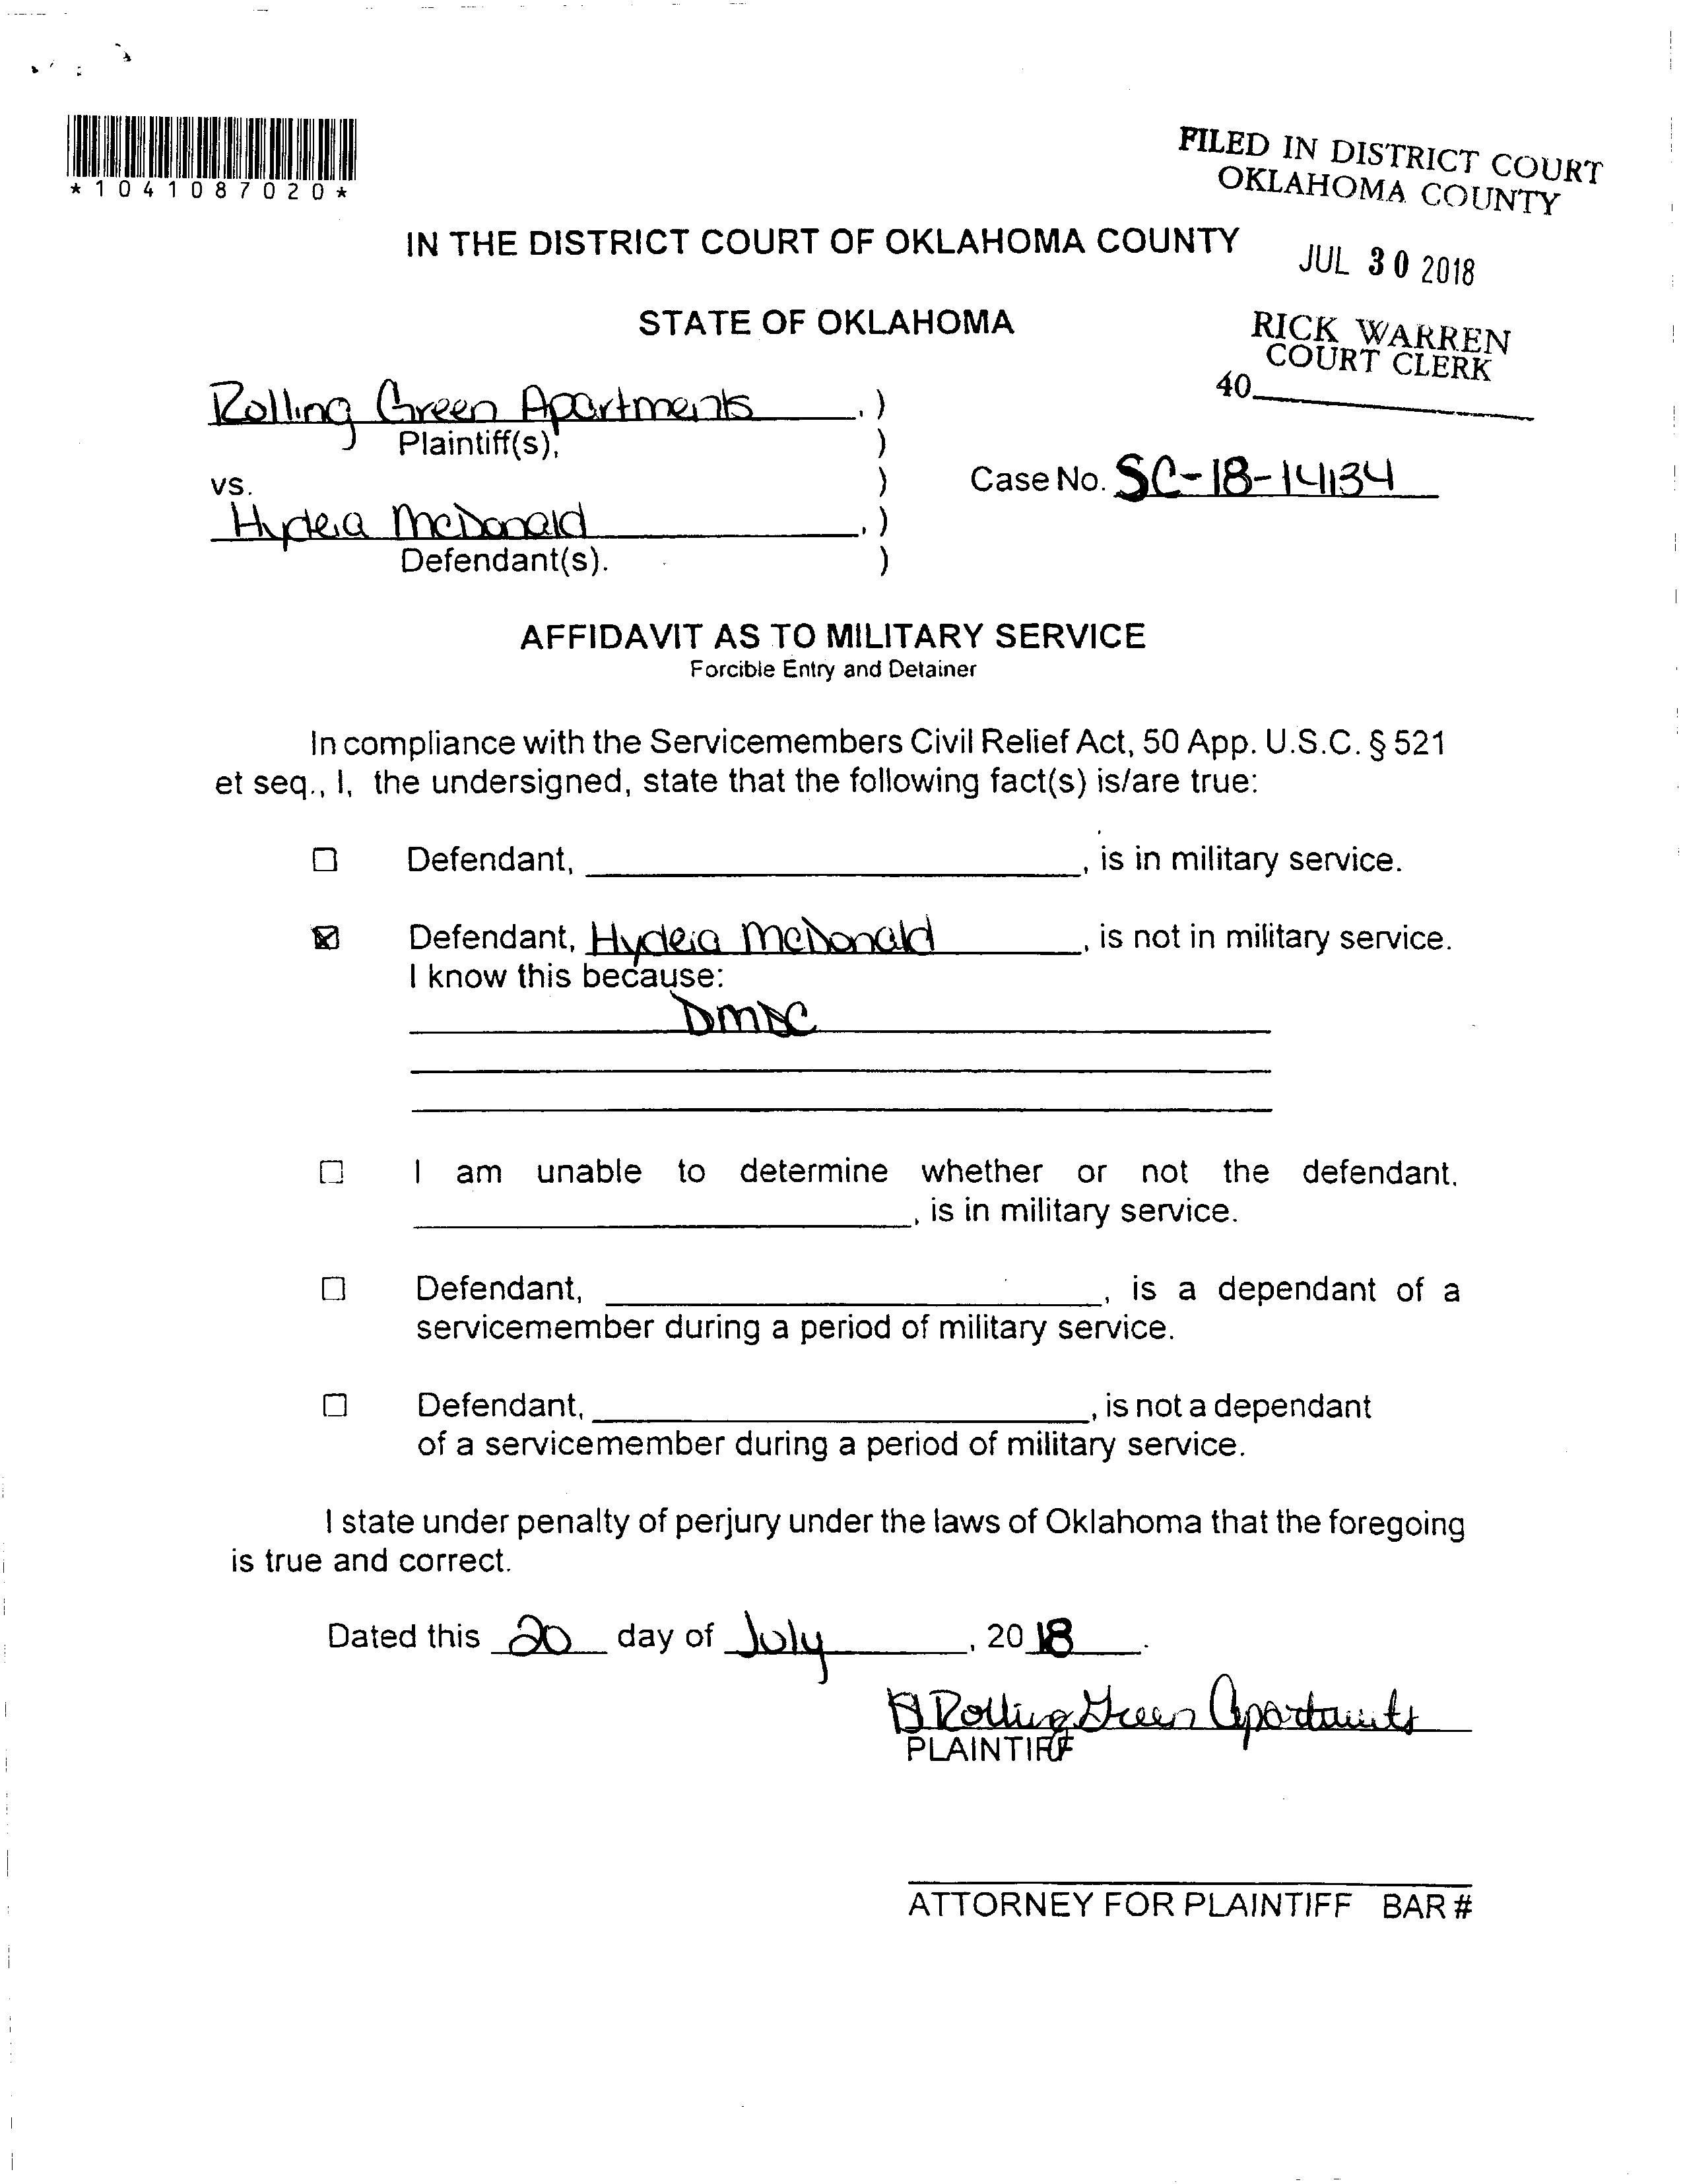 *1041087020*
FILED IN DISTRICT COURT
OKLAHOMA COUNTY
IN THE DISTRICT COURT OF OKLAHOMA COUNTY
JUL 30 2018
STATE OF OKLAHOMA
RICK WARREN
COURT CLERK
40
Rolling Green Apartments, )
Plaintiff(s), )
vs. ) Case No. SC-18-14134
Hydeia McDonald, )
Defendant(s). )
AFFIDAVIT AS TO MILITARY SERVICE
Forcible Entry and Detainer
In compliance with the Servicemembers Civil Relief Act, 50 App. U.S.C. § 521
et seq., I, the undersigned, state that the following fact(s) is/are true:
☐ Defendant, , is in military service.
☒ Defendant, Hydeia McDonald, is not in military service.
I know this because:
DMDC
☐ I am unable to determine whether or not the defendant.
, is in military service.
☐ Defendant, , is a dependant of a
servicemember during a period of military service.
☐ Defendant, , is not a dependant
of a servicemember during a period of military service.
I state under penalty of perjury under the laws of Oklahoma that the foregoing
is true and correct.
Dated this 20 day of July, 2018.
Rolling Green Apartments
PLAINTIFF
ATTORNEY FOR PLAINTIFF BAR #